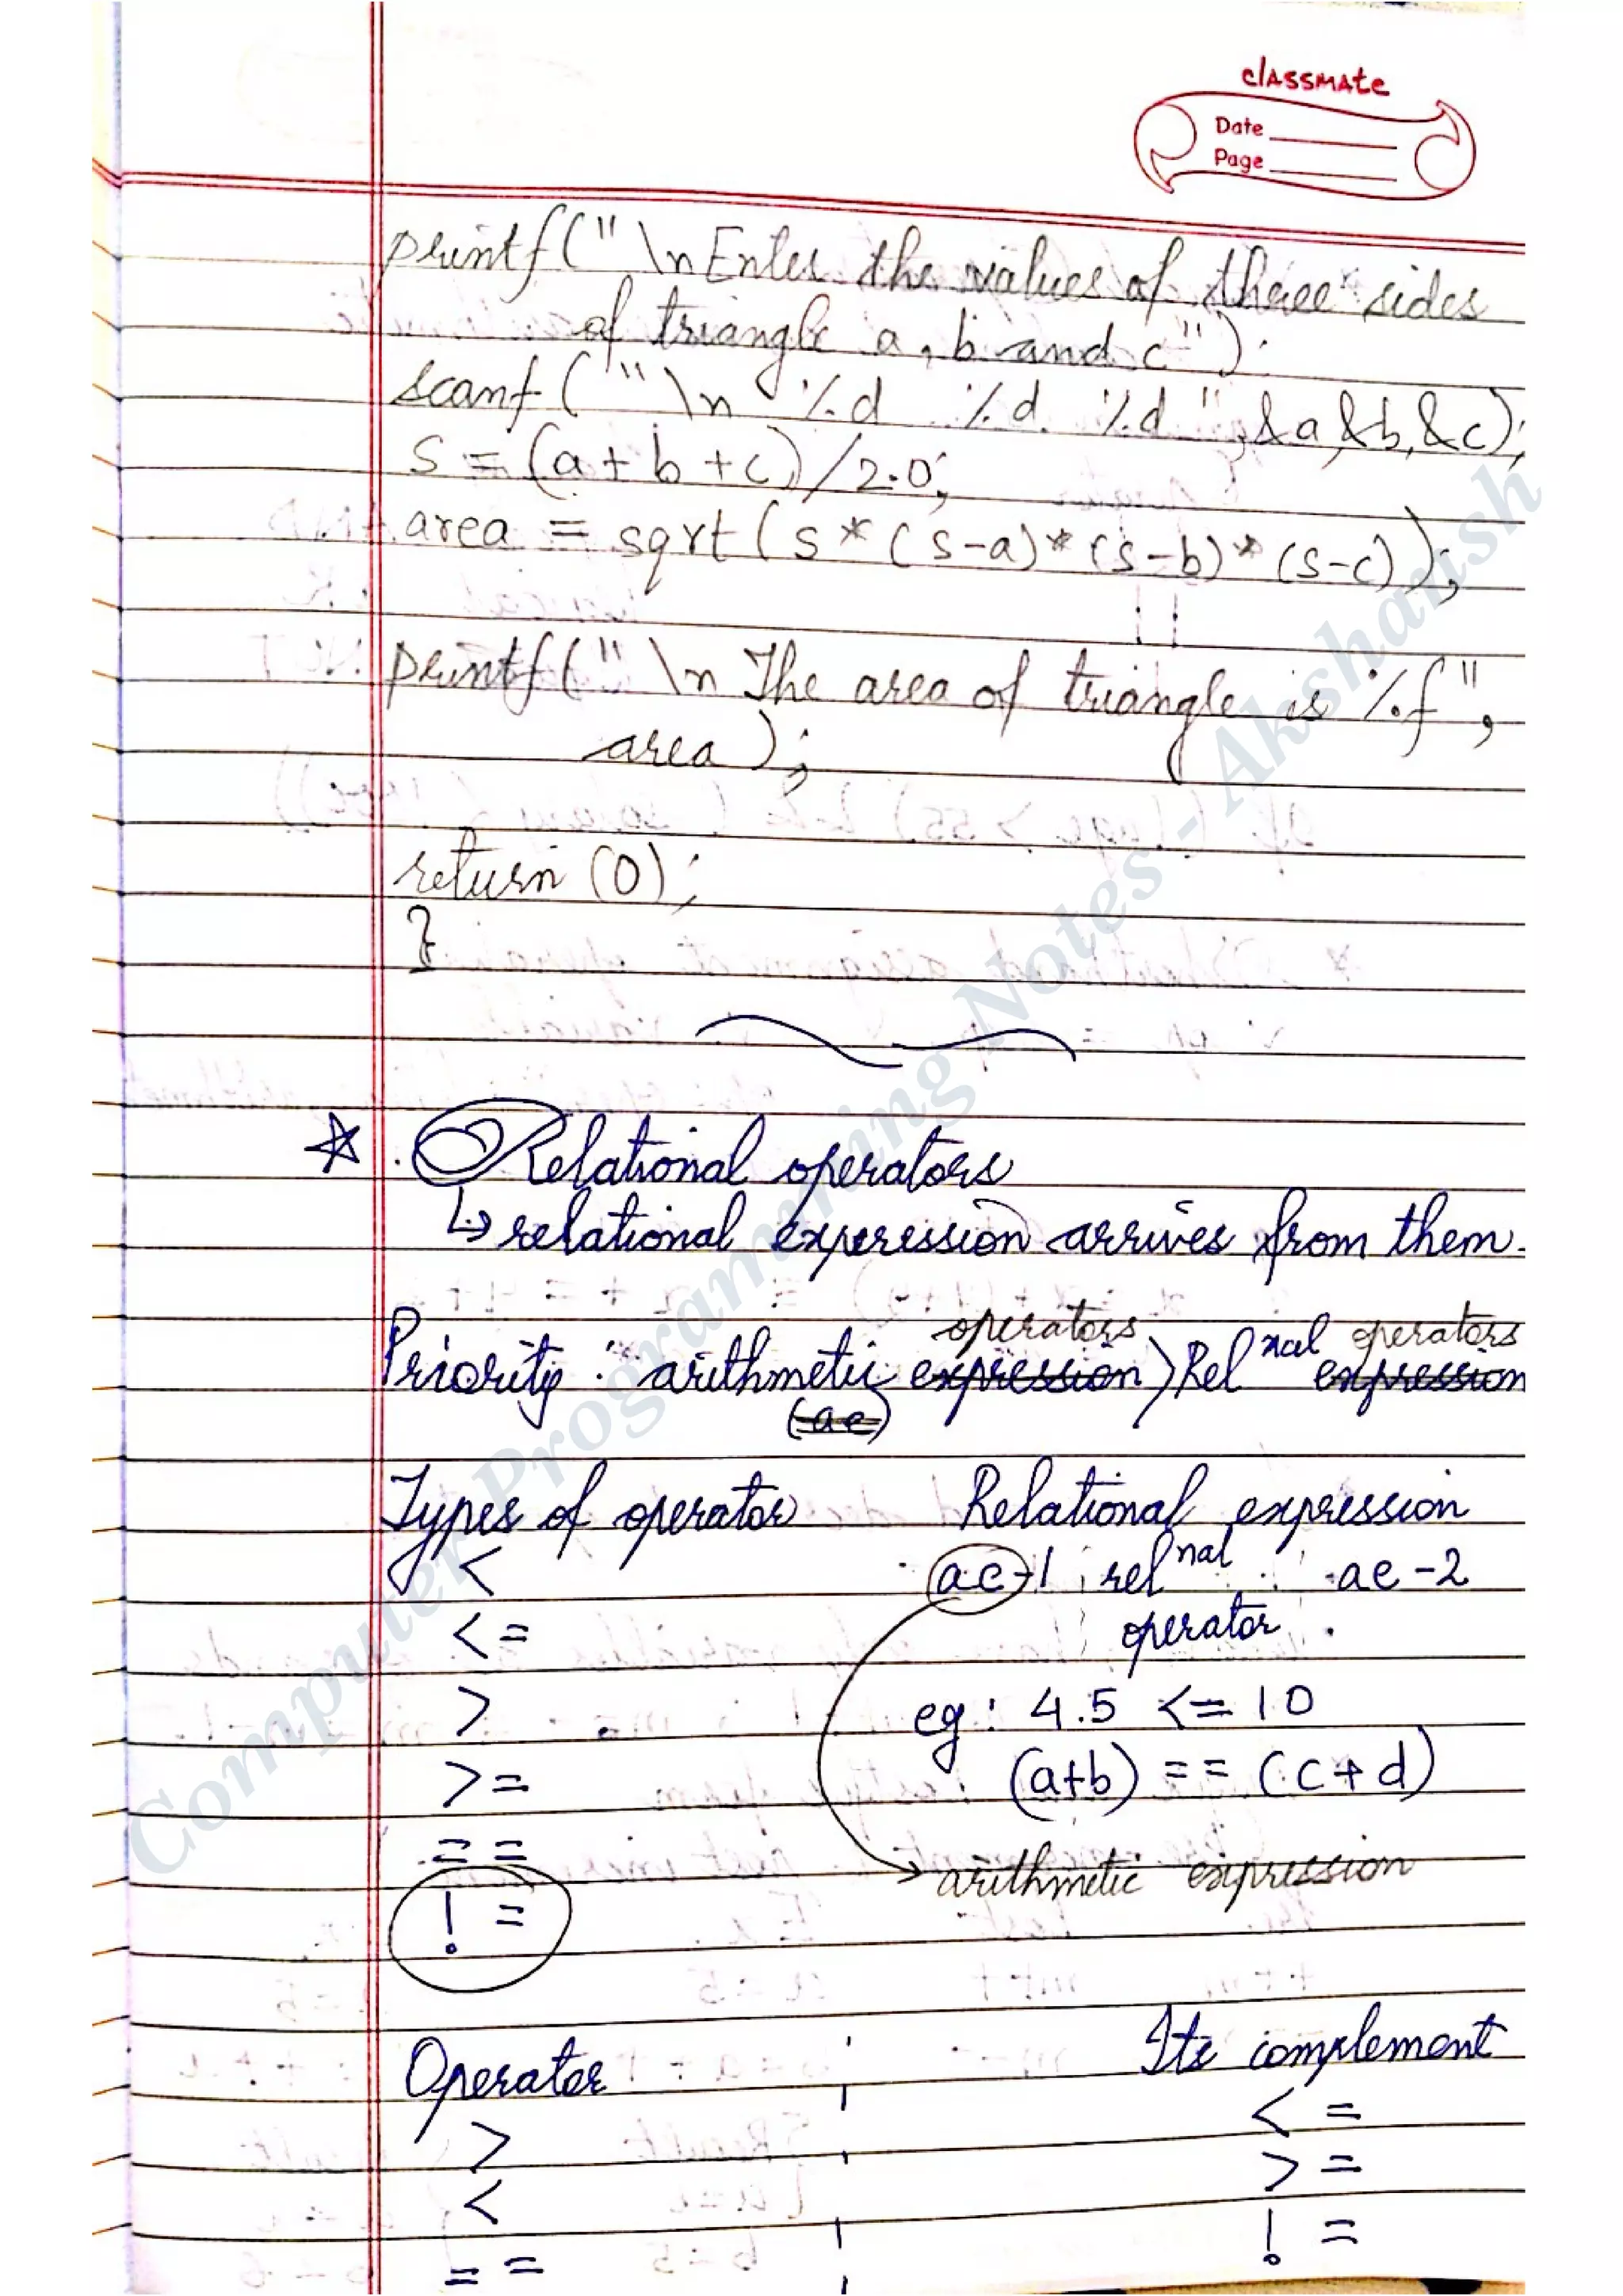 classmate
Date
Page
printf("\n Enter the values of three sides
of triangle a, b and c");
scanf("\n %d %d %d", &a, &b, &c);
s = (a + b + c) / 2.0;
area = sqrt(s * (s-a) * (s-b) * (s-c));
printf("\n The area of triangle is %f",
area);
return (0);
}
Relational operators
↳ relational expression arrives from them.
operators operators
Priority : arithmetic expression > Rel nal expression
(ae)
Types of operator Relational expression
< ae-1 rel nal ae-2
<= operator
> eg: 4.5 <= 10
>= (a+b) == (c+d)
==
→ arithmetic expression
!=
Operator Its complement
> <=
< >=
== !=
Computer Programming Notes - Akshansh